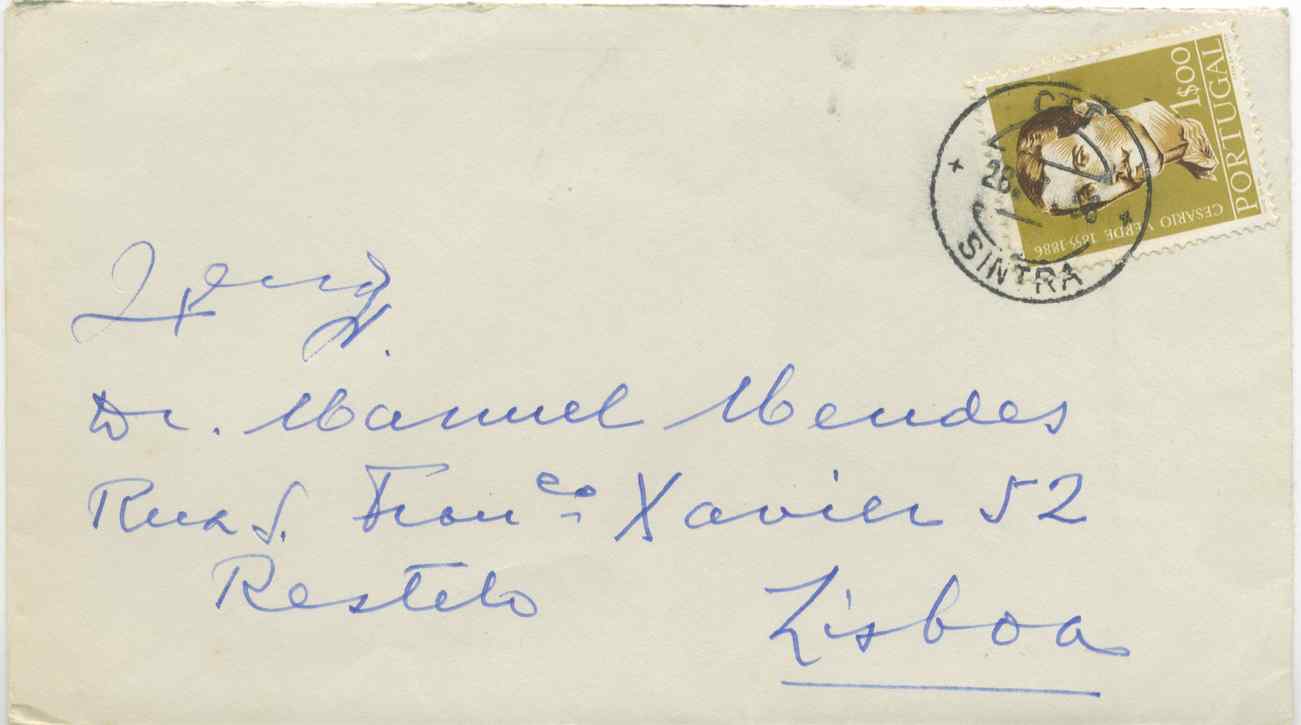 1$00
PORTUGAL
CESÁRIO VERDE 1855-1886
CTT
28
SINTRA
Dr. Manuel Mendes
Rua S. Franco Xavier 52
Restelo
Lisboa